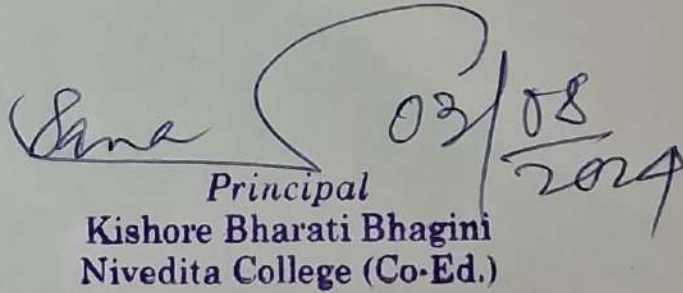 03/08/2024
Principal
Kishore Bharati Bhagini
Nivedita College (Co-Ed.)